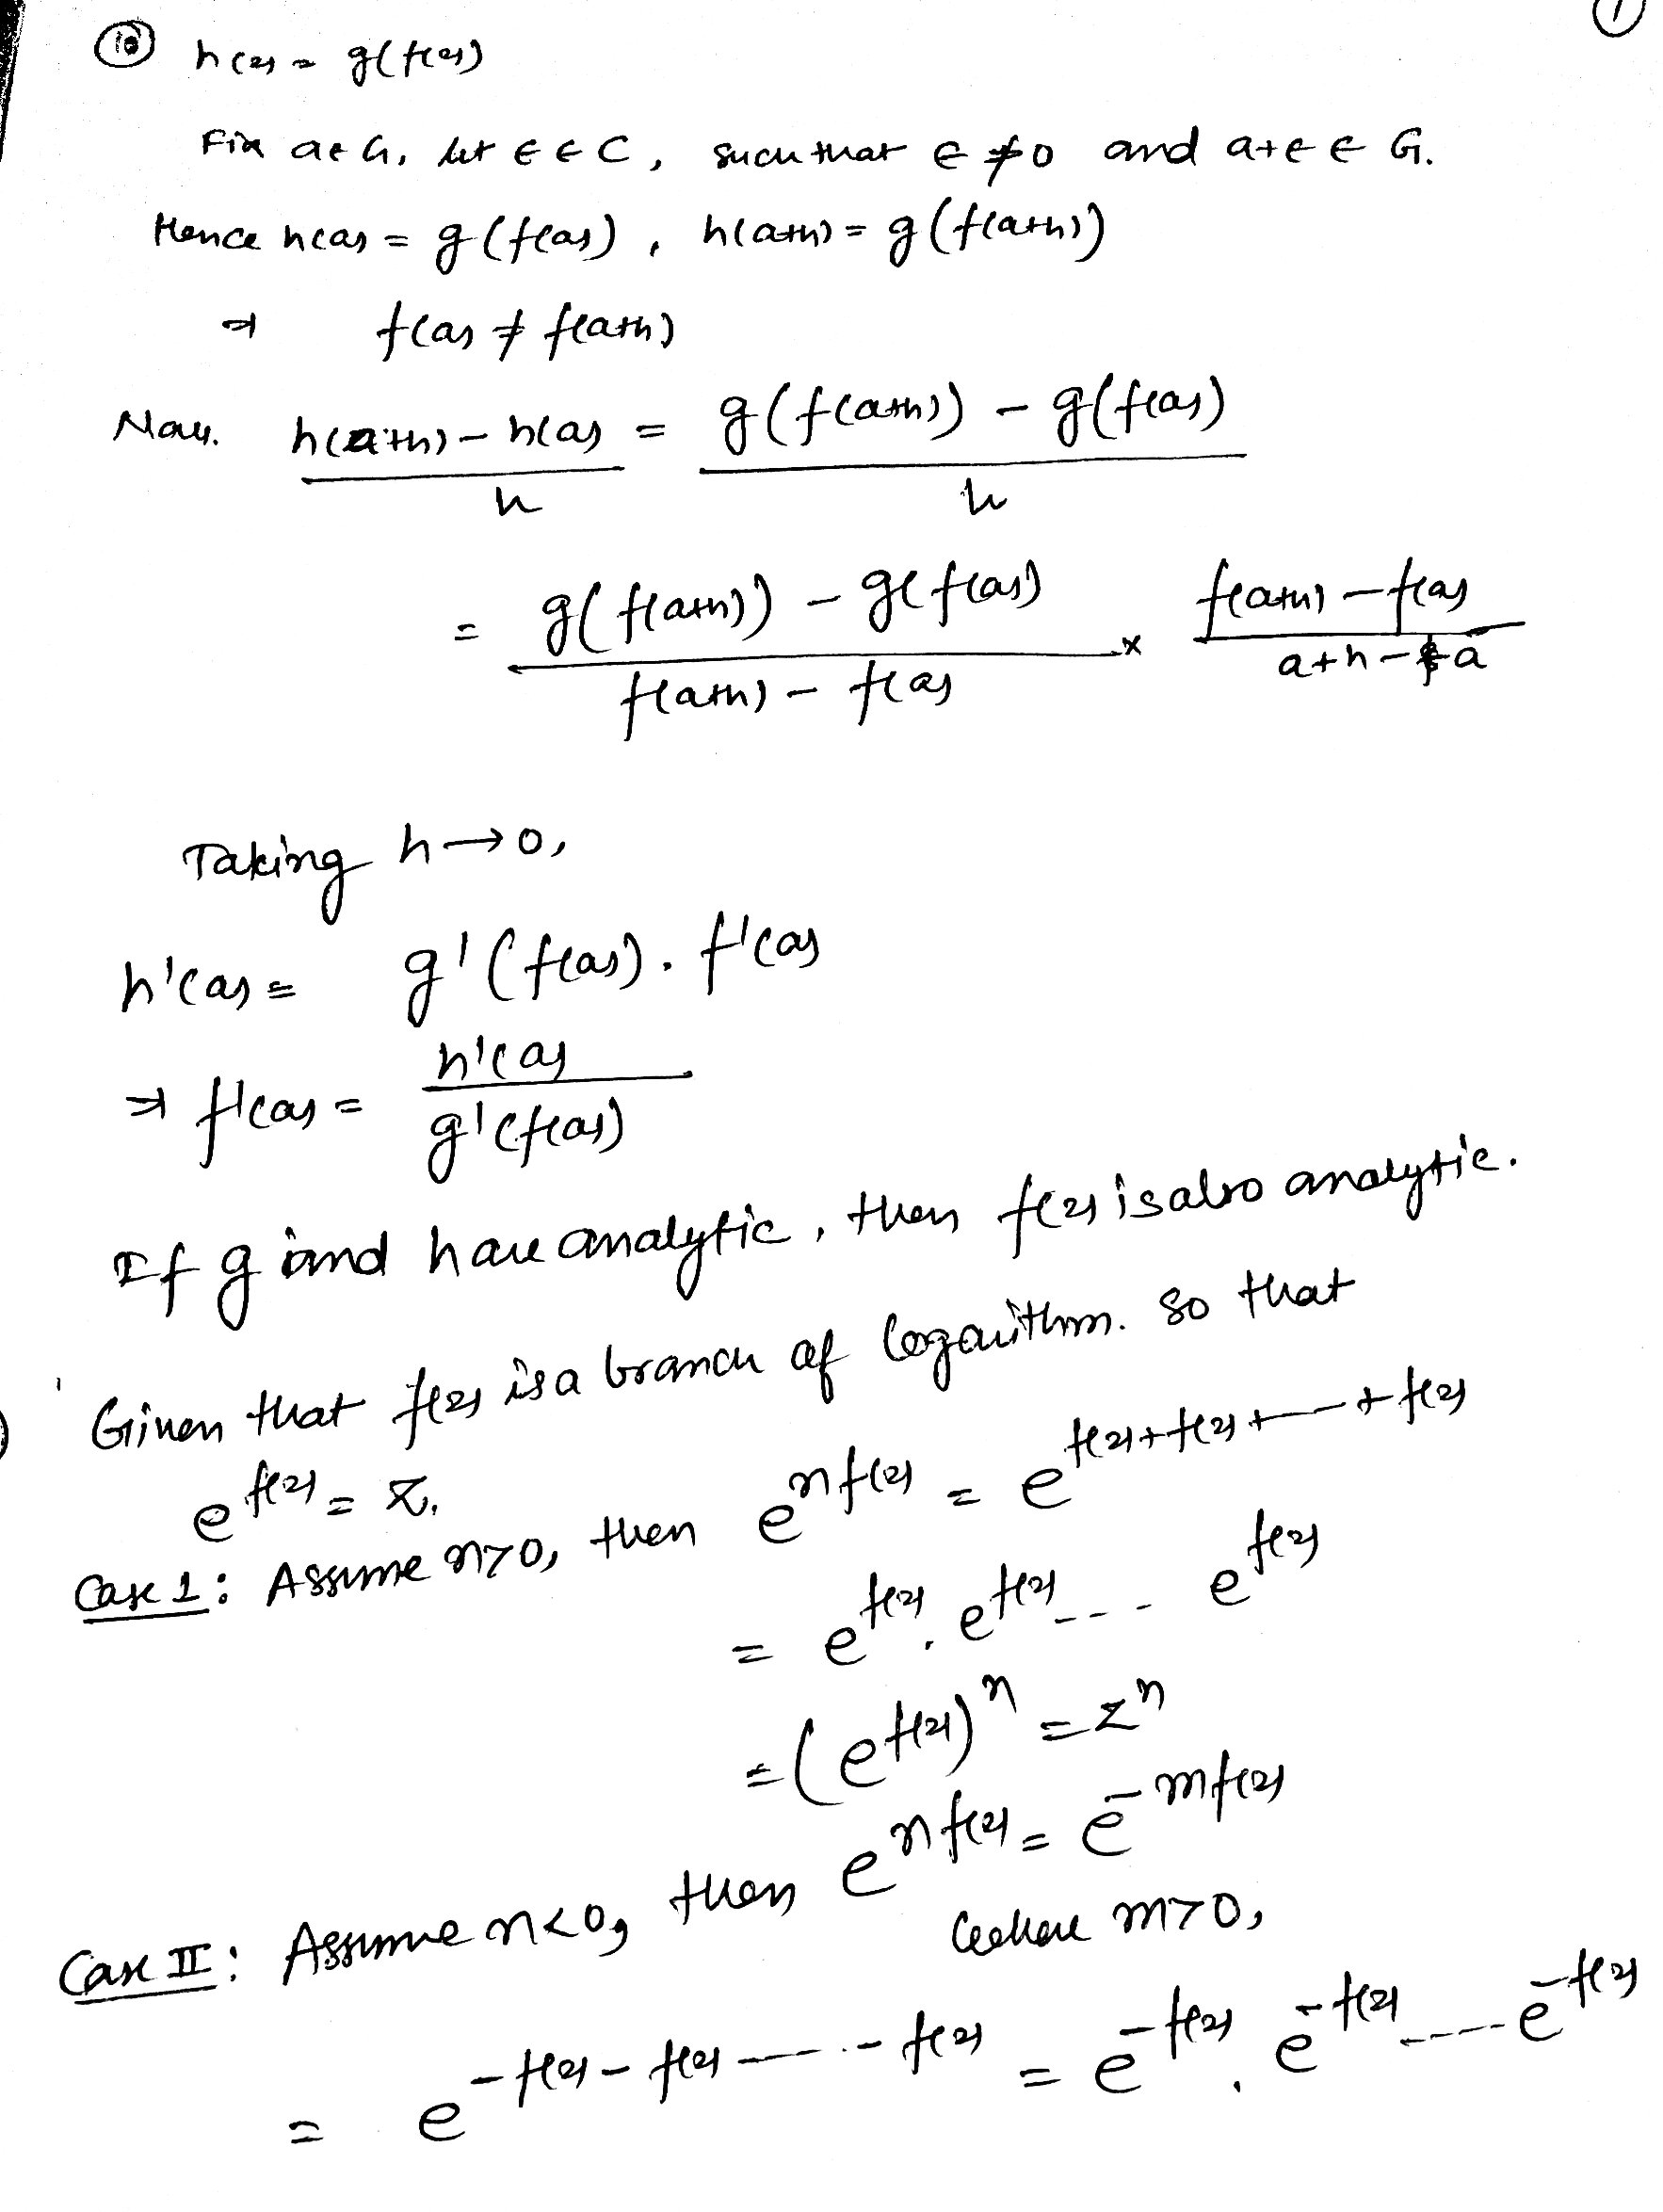 1
⑩ h(z) = g(f(z))
Fix a ∈ G, let ϵ ∈ C, such that ϵ ≠ 0 and a+ϵ ∈ G.
Hence h(a) = g(f(a)), h(a+h) = g(f(a+h))
⇒ f(a) ≠ f(a+h)
Now. h(a+h) - h(a) / h = g(f(a+h)) - g(f(a)) / h
= g(f(a+h)) - g(f(a)) / f(a+h) - f(a) × f(a+h) - f(a) / a+h-a
Taking h→0,
h'(a) = g'(f(a)). f'(a)
⇒ f'(a) = h'(a) / g'(f(a))
If g and h are analytic, then f(z) is also analytic.
Given that f(z) is a branch of logarithm. so that
e^f(z) = z.
Case 1: Assume n>0, then e^nf(z) = e^f(z)+f(z)+---+f(z)
= e^f(z). e^f(z)---- e^f(z)
= (e^f(z))^n = z^n
Case II: Assume n<0, then e^nf(z) = e^-mf(z)
where m>0,
= e^-f(z)-f(z)-----f(z) = e^-f(z). e^-f(z)----e^-f(z)